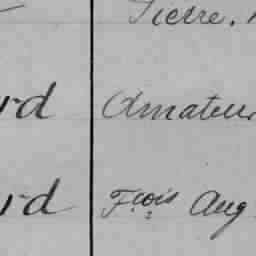 Pierre,
rd Amateur
rd Fçois Aug